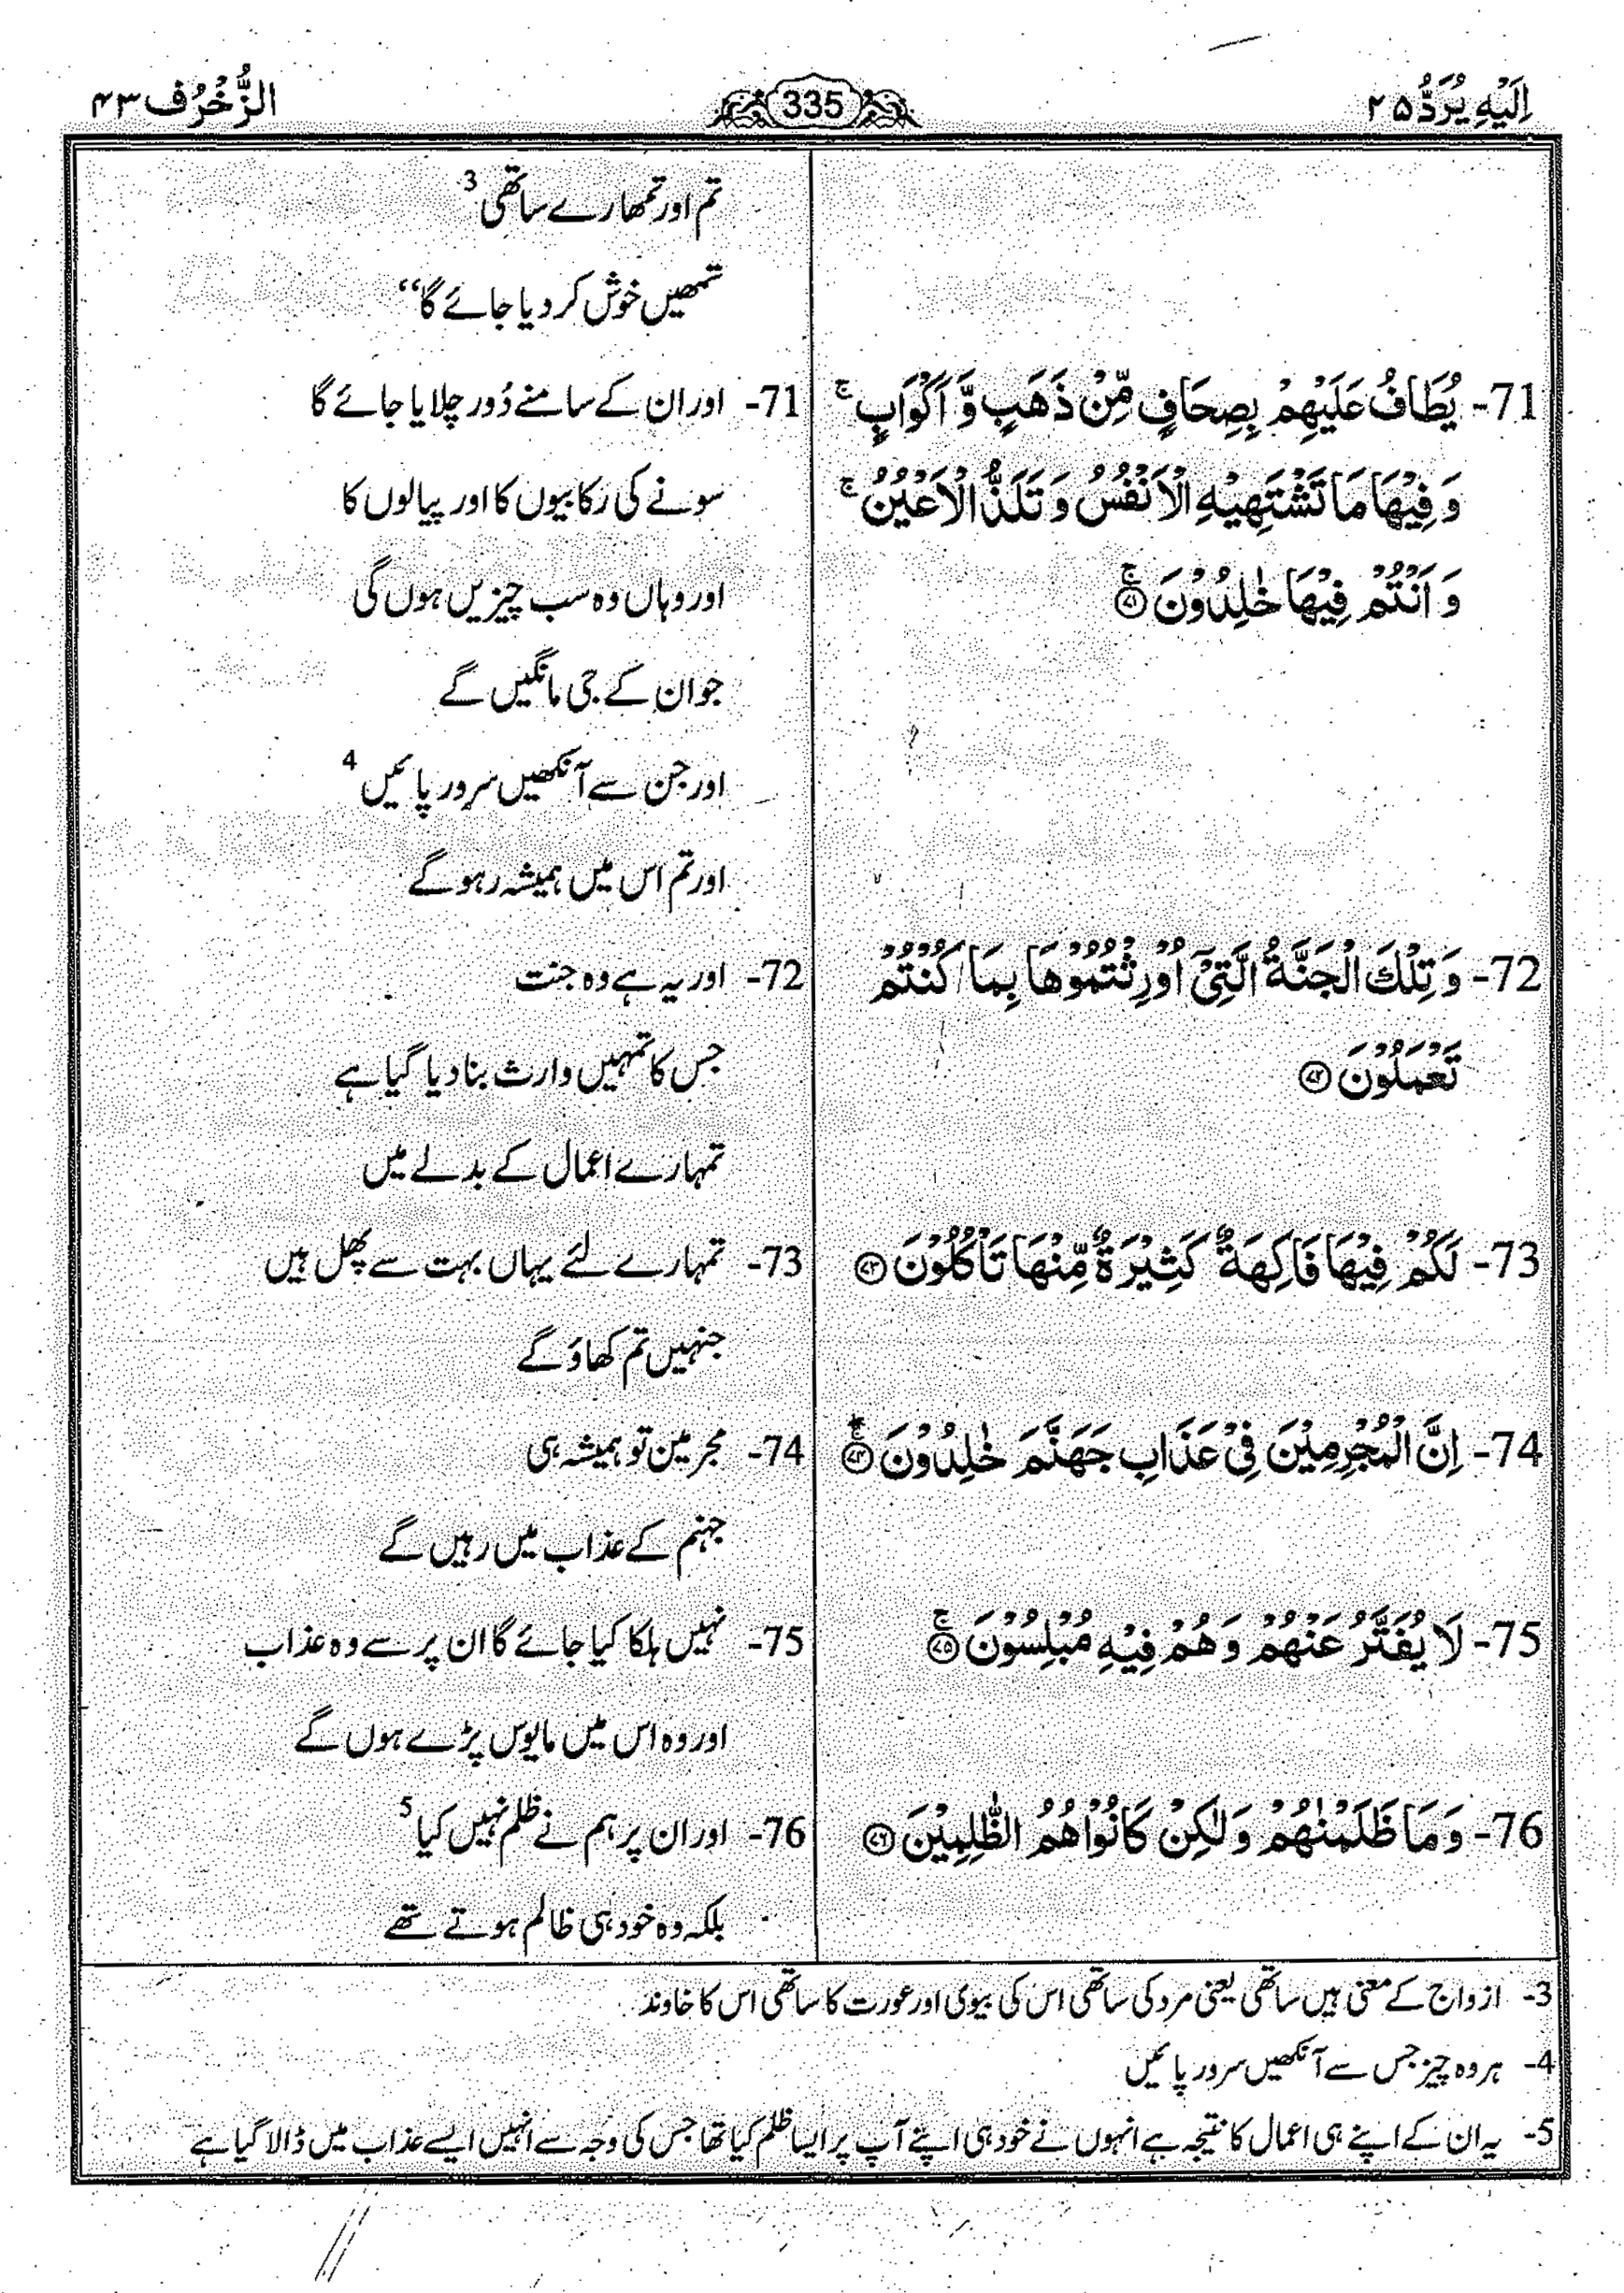 اِلَيْهِ يُرَدُّ ۲۵
335
الزُّخْرُف ۴۳
تم اور تمھارے ساتھی 3
تمھیں خوش کر دیا جائے گا‘‘
71- يُطَافُ عَلَيْهِمْ بِصِحَافٍ مِّنْ ذَهَبٍ وَّ اَكْوَابٍ ۚ
وَ فِيْهَا مَا تَشْتَهِيْهِ الْاَنْفُسُ وَ تَلَذُّ الْاَعْيُنُ ۚ
وَ اَنْتُمْ فِيْهَا خٰلِدُوْنَ ۚ ﴿۷۱﴾
71- اور ان کے سامنے دَور چلایا جائے گا
سونے کی رکابیوں کا اور پیالوں کا
اور وہاں وہ سب چیزیں ہوں گی
جو ان کے جی مانگیں گے
اور جن سے آنکھیں سرور پائیں 4
اور تم اس میں ہمیشہ رہو گے
72- وَ تِلْكَ الْجَنَّةُ الَّتِيْۤ اُوْرِثْتُمُوْهَا بِمَا كُنْتُمْ
تَعْمَلُوْنَ ﴿۷۲﴾
72- اور یہ ہے وہ جنت
جس کا تمہیں وارث بنا دیا گیا ہے
تمہارے اعمال کے بدلے میں
73- لَكُمْ فِيْهَا فَاكِهَةٌ كَثِيْرَةٌ مِّنْهَا تَاْكُلُوْنَ ﴿۷۳﴾
73- تمہارے لئے یہاں بہت سے پھل ہیں
جنہیں تم کھاؤ گے
74- اِنَّ الْمُجْرِمِيْنَ فِيْ عَذَابِ جَهَنَّمَ خٰلِدُوْنَ ۚ ﴿۷۴﴾
74- مجرمین تو ہمیشہ ہی
جہنم کے عذاب میں رہیں گے
75- لَا يُفَتَّرُ عَنْهُمْ وَ هُمْ فِيْهِ مُبْلِسُوْنَ ۚ ﴿۷۵﴾
75- نہیں ہلکا کیا جائے گا ان پر سے وہ عذاب
اور وہ اس میں مایوس پڑے ہوں گے
76- وَ مَا ظَلَمْنٰهُمْ وَ لٰكِنْ كَانُوْا هُمُ الظّٰلِمِيْنَ ﴿۷۶﴾
76- اور ان پر ہم نے ظلم نہیں کیا 5
بلکہ وہ خود ہی ظالم ہوتے تھے
3- ازواج کے معنی ہیں ساتھی یعنی مرد کی ساتھی اس کی بیوی اور عورت کا ساتھی اس کا خاوند
4- ہر وہ چیز جس سے آنکھیں سرور پائیں
5- یہ ان کے اپنے ہی اعمال کا نتیجہ ہے انہوں نے خود ہی اپنے آپ پر ایسا ظلم کیا تھا جس کی وجہ سے انہیں ایسے عذاب میں ڈالا گیا ہے